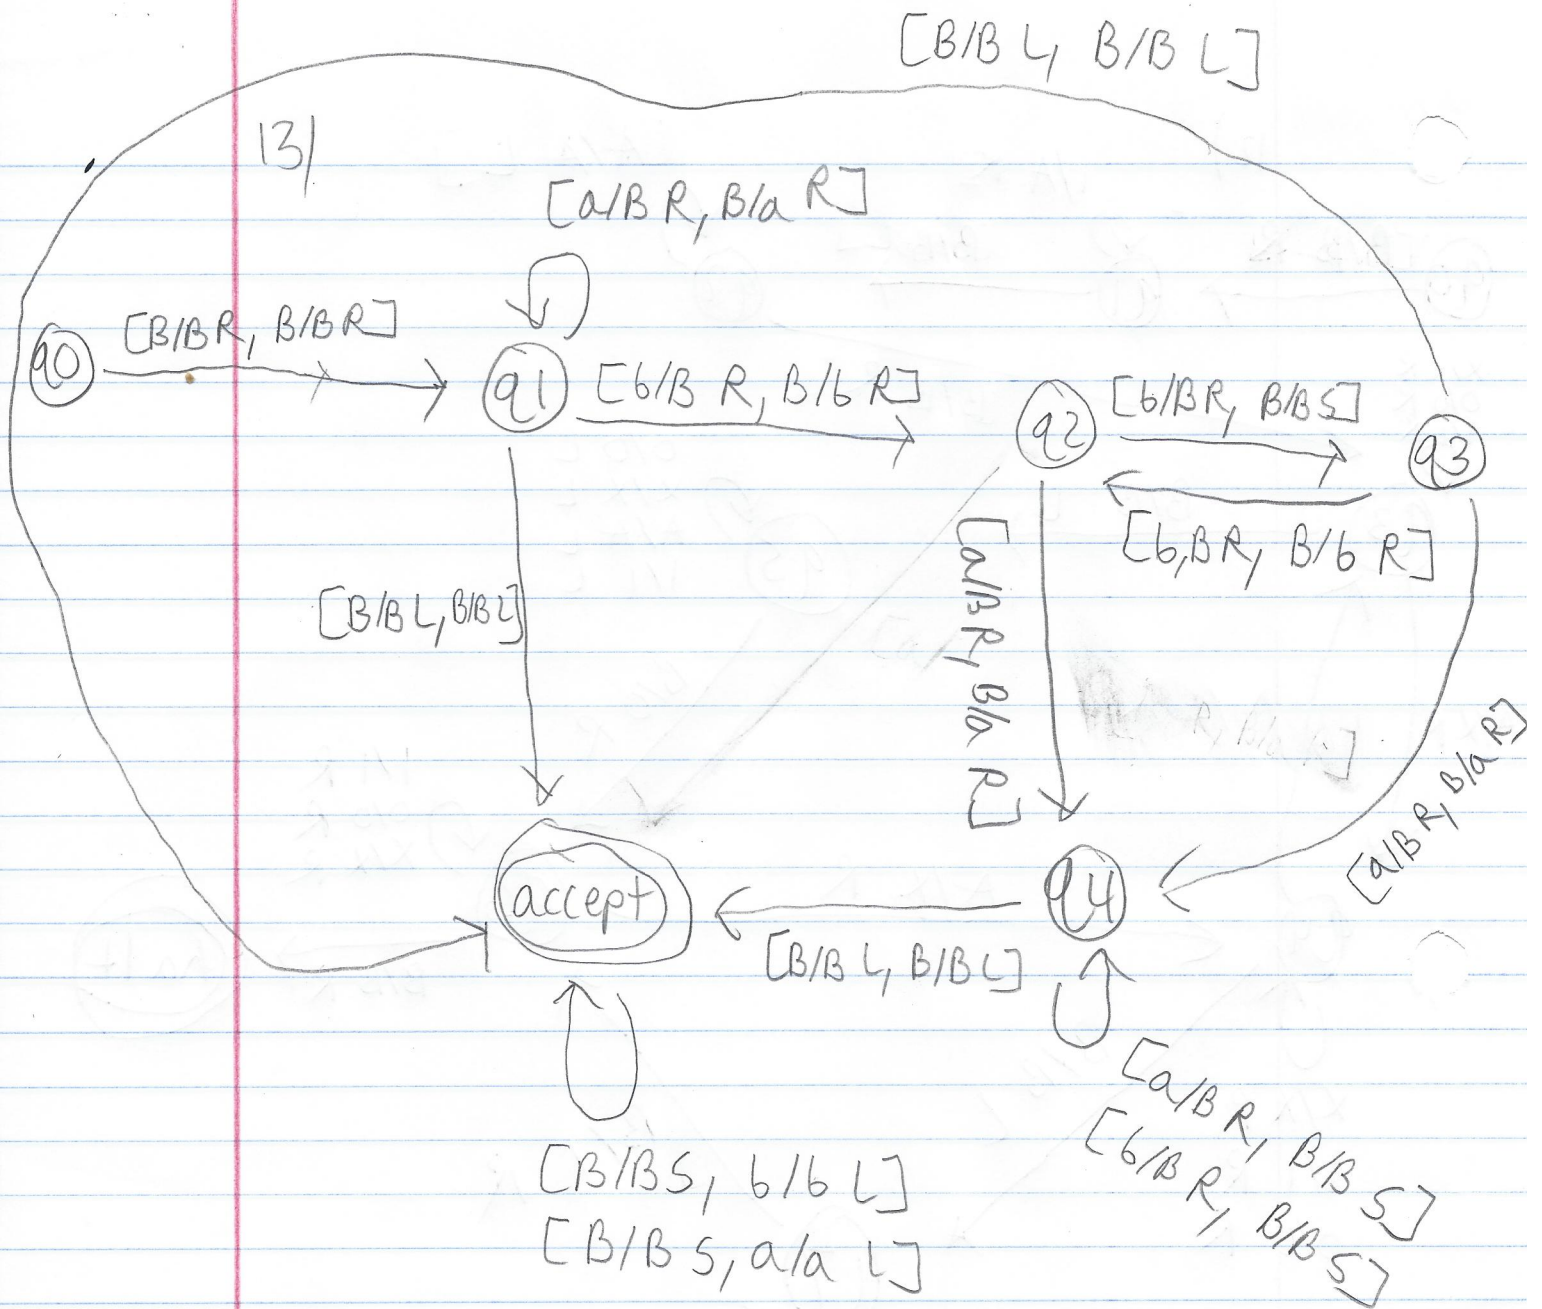 [B/B L, B/B L]
13/
[a/B R, B/a R]
q0
[B/B R, B/B R]
q1
[b/B R, B/b R]
q2
[b/B R, B/B S]
q3
[b,B R, B/b R]
[B/B L, B/B L]
[a/B R, B/a R]
[a/B R, B/a R]
accept
[B/B L, B/B L]
q4
[a/B R, B/B S]
[b/B R, B/B S]
[B/B S, b/b L]
[B/B S, a/a L]